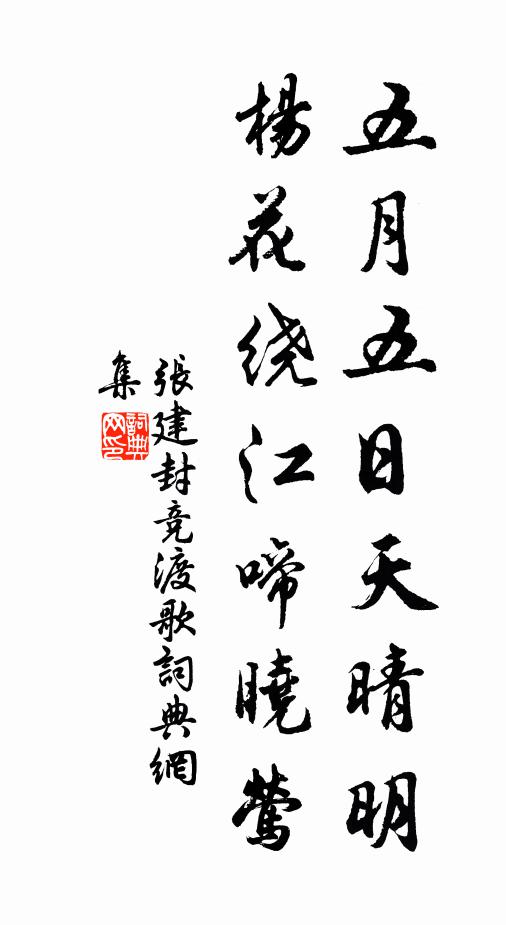 五月五日天晴明
楊花绕江啼曉鶯
張建封竞渡歌詞典網
集
詞典网印